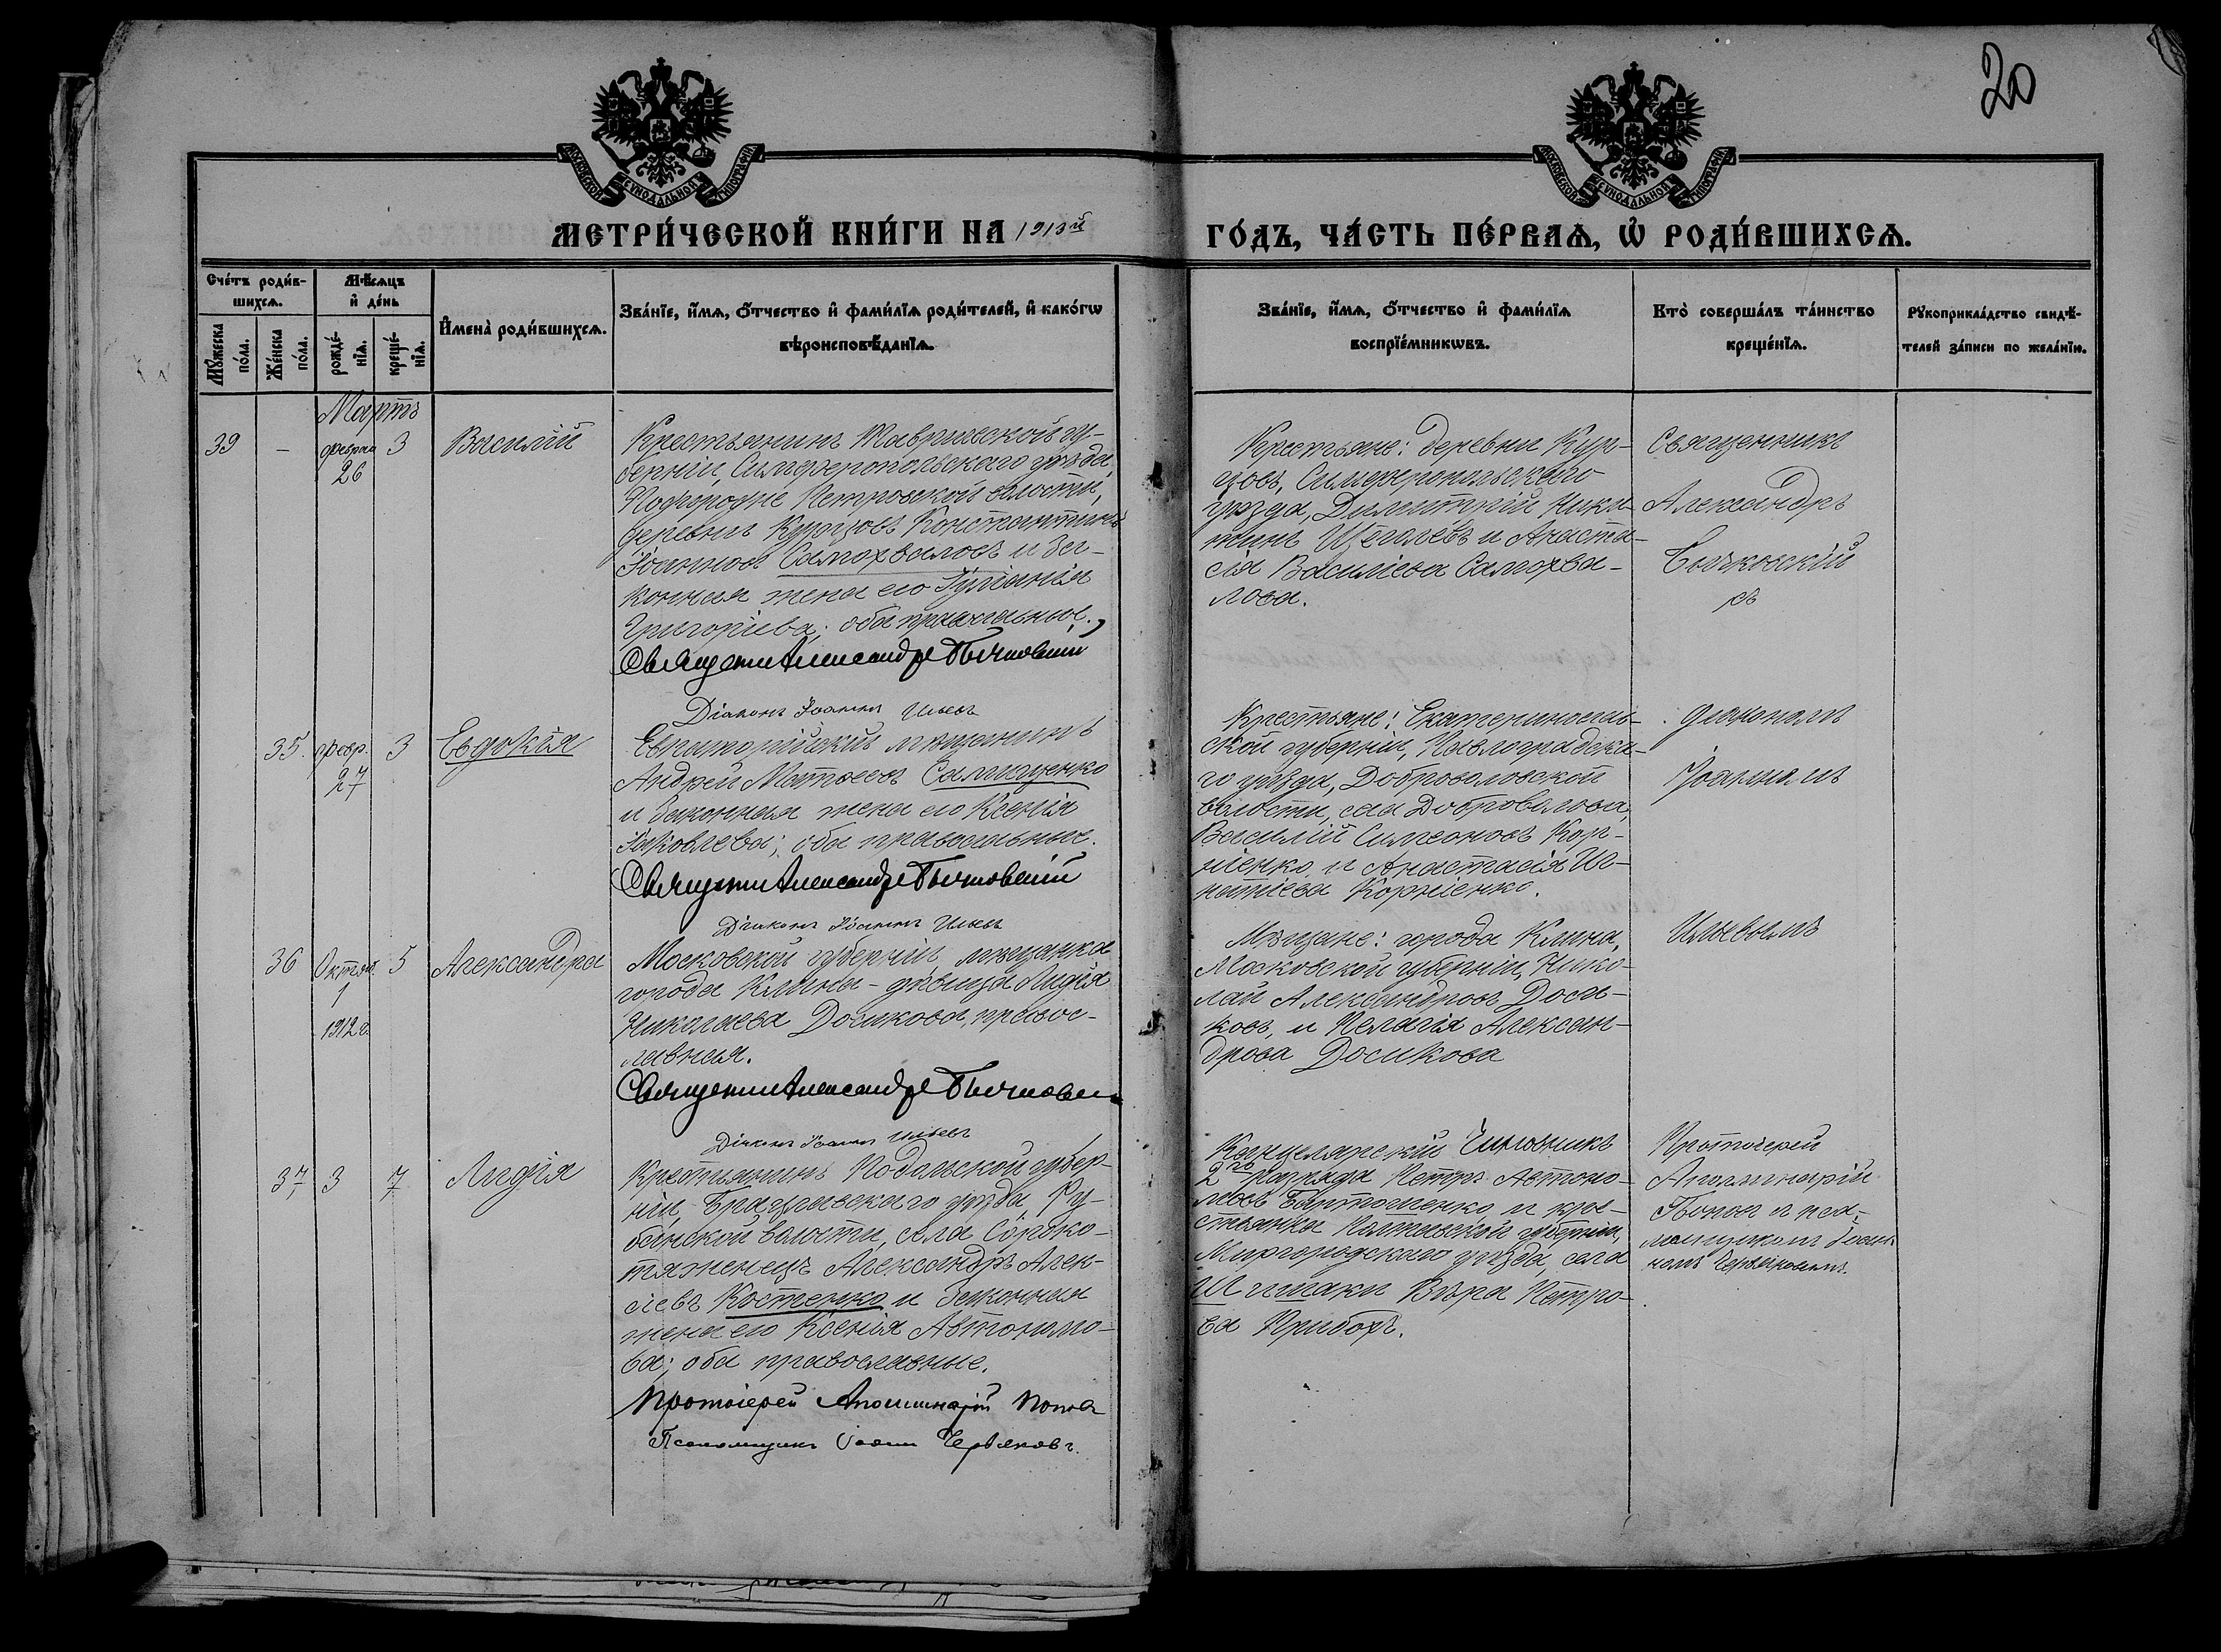 20
МОСКОВСКОЙ СѴНОДАЛЬНОЙ ТИПОГРАФІИ
МОСКОВСКОЙ СѴНОДАЛЬНОЙ ТИПОГРАФІИ
МЕТРИ́ЧЕСКОЙ КНИ́ГИ НА 1913й
ГО́ДЪ, ЧА́СТЬ ПЕ́РВАѦ, Ѽ РОДИ́ВШИХСѦ.
Сче́тъ роди́в-
шихсѧ.
Мꙋ́жеска
по́ла.
Же́нска
по́ла.
Мѣ́сѧцъ
и҆ де́нь
рожде́-
нїѧ.
креще́-
нїѧ.
И҆мена̀ роди́вшихсѧ.
Зва́нїе, и҆́мѧ, ѻ҆́тчество и҆ фами́лїѧ роди́телей, и҆ како́гѡ
вѣроисповѣ́данїѧ.
Зва́нїе, и҆́мѧ, ѻ҆́тчество и҆ фами́лїѧ
воспрїе́мникѡвъ.
Кто̀ соверша́лъ та́инство
креще́нїѧ.
Рꙋкоприкла́дство свидѣ́-
телей за́писи по жела́нїю.
Мартъ
39
-
февраля
26
3
Василій
Крестьянинъ Таврической гу-
берніи, Симферопольскаго уѣзда,
Подгородне Петровской волости,
деревни Курцовъ Константинъ
Іоанновъ Самохваловъ и за-
конная жена его Іуліанія
Григоріева; оба православные.
Священникъ Александръ Бычковскій
Діаконъ Іоаннъ Ильевъ
Крестьяне: деревни Кур-
цовъ, Симферопольскаго
уѣзда, Димитрій Ники-
тинъ Щеголевъ и Анаста-
сія Василіева Самохва-
лова.
Священникъ
Александръ
Бычковскій
съ
35.
февр.
27
3
Евдокія
Евпаторійскій мѣщанинъ
Андрей Матѳеевъ Самищенко
и законная жена его Ксенія
Іаковлева; оба православные.
Священникъ Александръ Бычковскій
Діаконъ Іоаннъ Ильевъ
Крестьяне: Екатеринослав-
ской губерніи, Павлоградска-
го уѣзда, Добровольской
волости, села Доброволова,
Василій Симеоновъ Кор-
ніенко и Анастасія Иг-
натіева Корніенко.
діакономъ
Іоанномъ
36
Октяб.
1
1912 г.
5
Александра
Московской губерніи мѣщанка
города Клина - дѣвица Лидія
Николаева Досикова, правос-
лавная.
Священникъ Александръ Бычковскій
Діаконъ Іоаннъ Ильевъ
Мѣщане: города Клина,
Московской губерніи, Нико-
лай Александровъ Доси-
ковъ, и Пелагія Алексан-
дрова Досикова
Ильевымъ
37
3
7
Лидія
Крестьянинъ Подольской губер-
ніи, Брацлавскаго уѣзда,
волости, села Сороко-
тяженецъ Александръ Алек-
сіевъ Костенко и законная
жена его Ксенія Автономо-
ва; оба православные.
Протоіерей Аполлинарій Поповъ
Псаломщикъ Іоаннъ Червяковъ.
Канцелярскій чиновникъ
2го разряда Петръ Автоно-
мовъ Бартошенко и кре-
стьянка Полтавской губерніи,
Миргородскаго уѣзда, села
Шишаки Вѣра Петро-
ва Прибохъ.
Протоіерей
Аполлинарій
Поповъ и пса-
ломщикомъ Іоан-
номъ Червяковымъ.